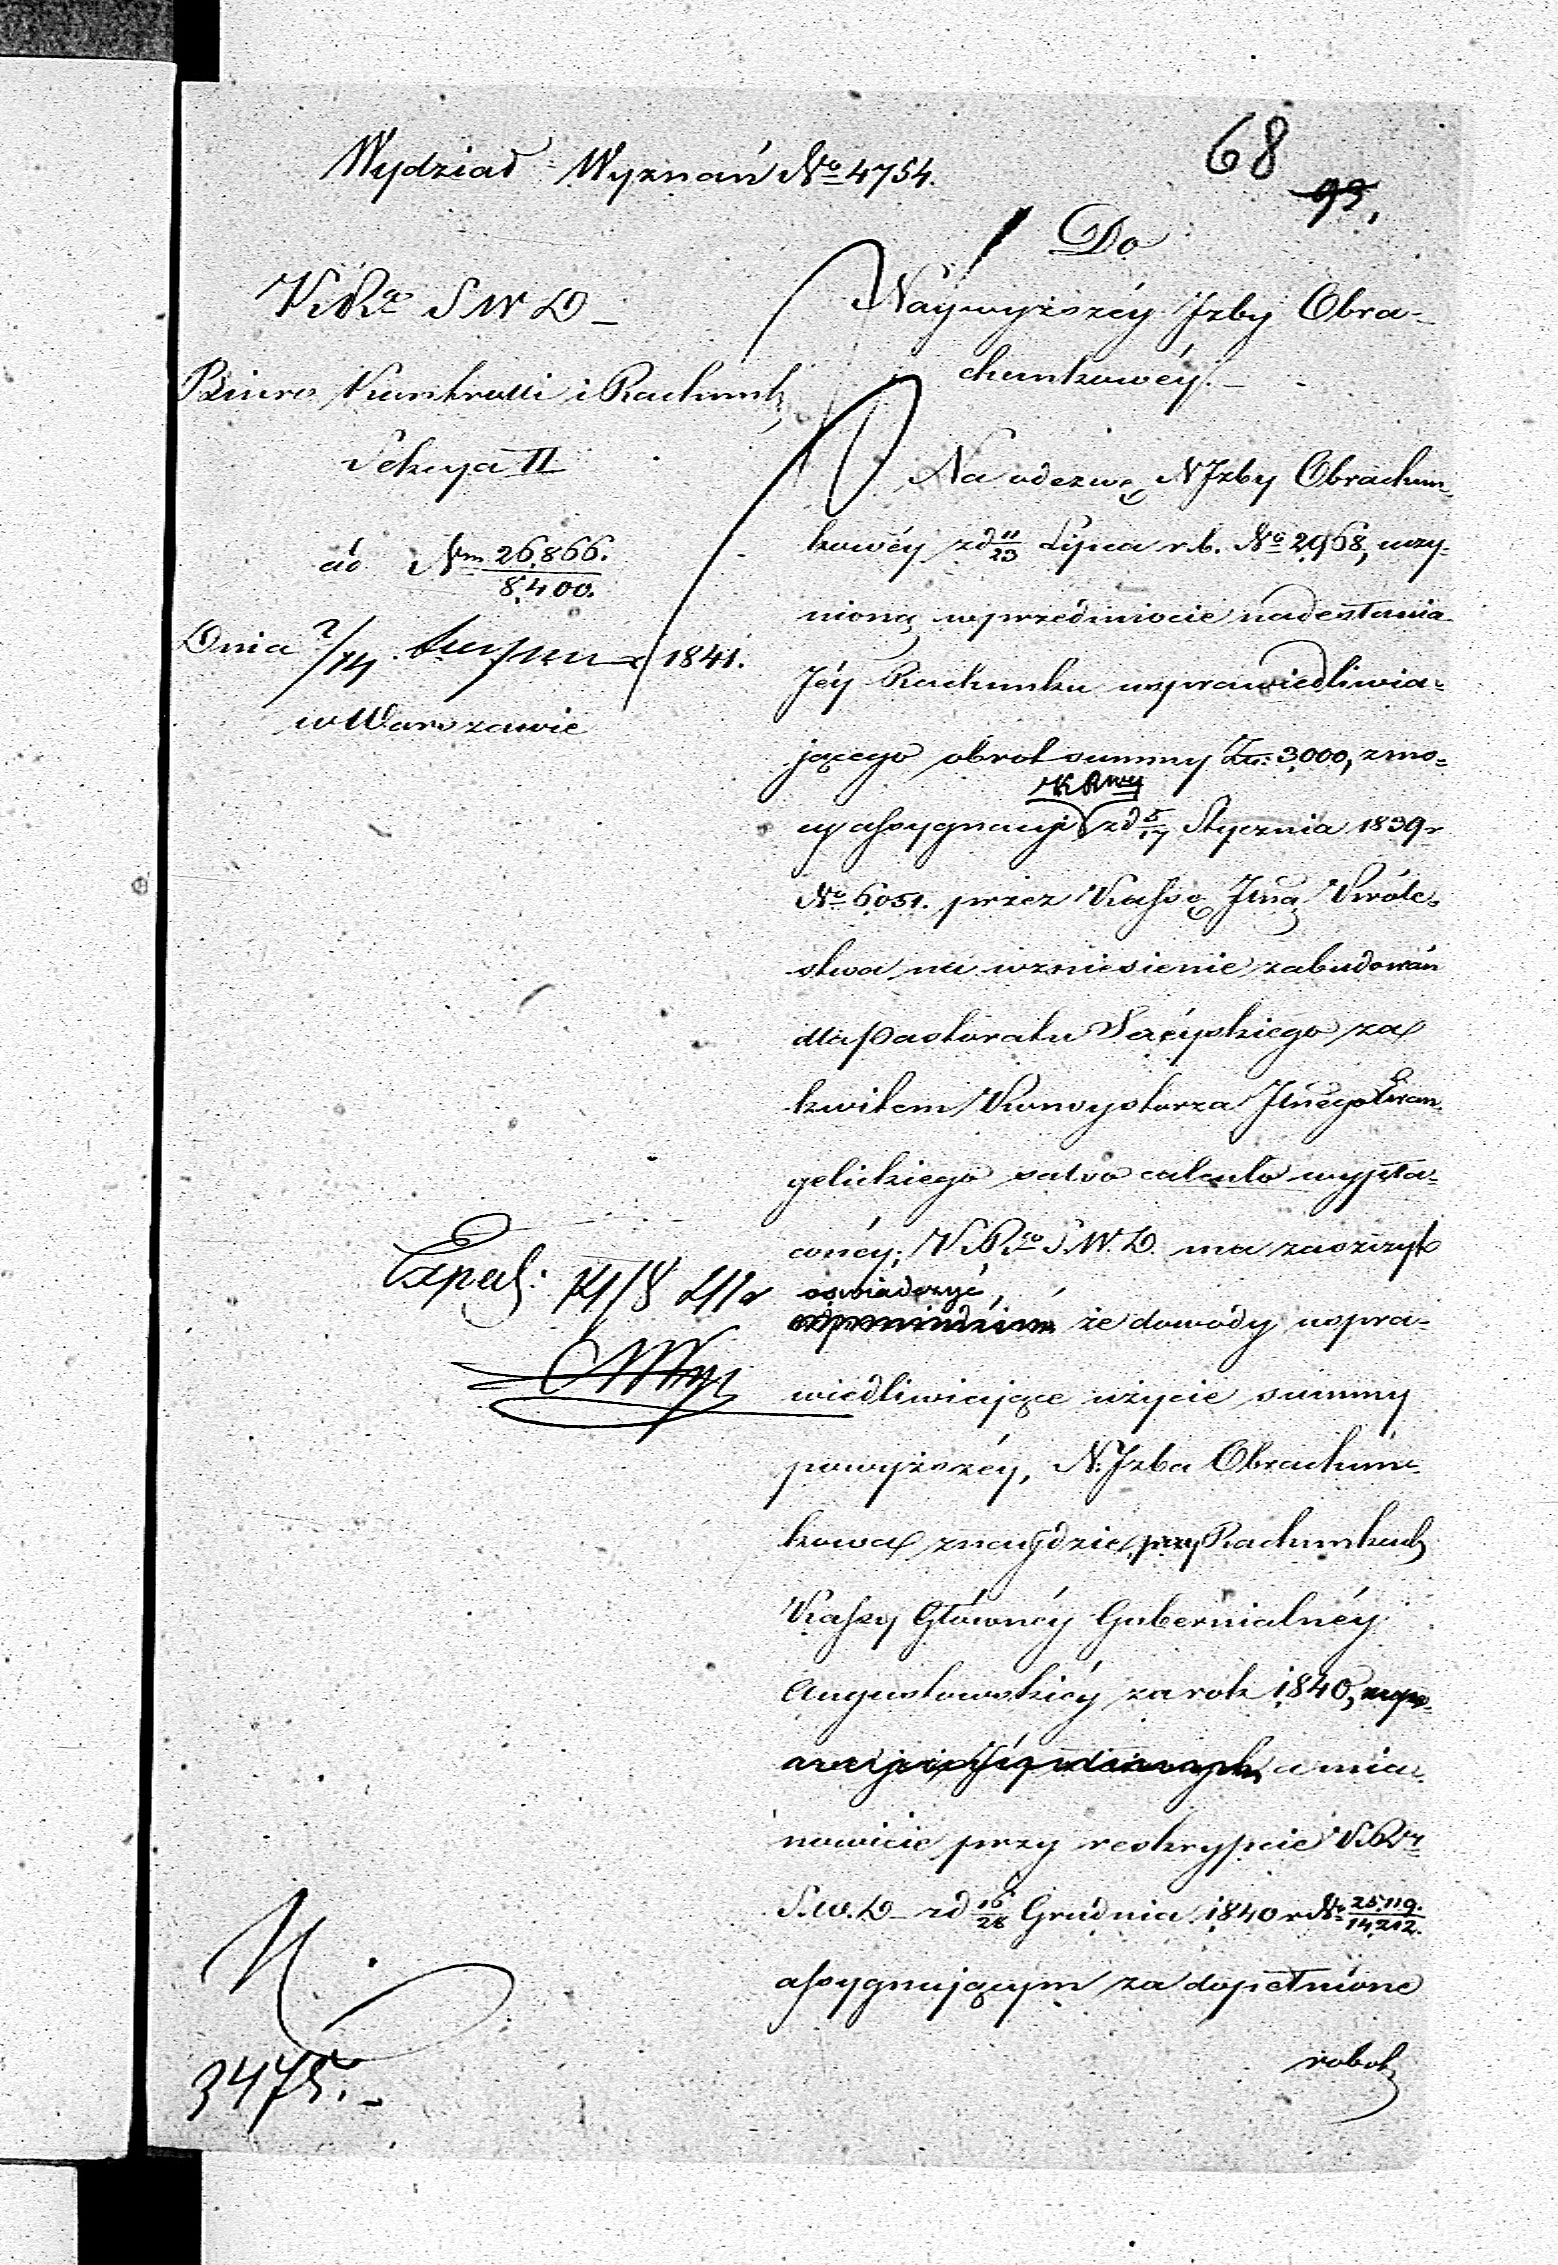 68
93.
Wydział Wyznań No 4754.
K. R. S W D
Biuro Kontrolli i Rachunk
Sekcya II
ad Nm 26,866.
8,400.
Dnia 2/14 Sierpnia 1841.
w Warszawie
Do
Naywyższéy Jzby Obra-
chunkowéy.
Na odezwę N Jzby Obrachun-
kowéy z d 11/23 Lipca r. b. No 2968, uczy-
nioną w przedmiocie nadesłania
Jéy Rachunku usprawiedliwia-
jącego obrot summy Zł: 3,000, z mo-
K R wy
cy assygnacyi z d 5/17 Stycznia 1839 r
No 6051. przez Kassę Jlną Króle-
stwa na wzniesienie zabudowań
dla Pastoratu Sereyskiego za
kwitem Konsystorza Jlnego Ewan-
gelickiego salvo calculo wypła-
conéy; K. R. S. W. D. ma zaszczyt
oświadczyć,
że dowody uspra-
wiedliwiające użycie summy
powyższéy, N. Jzba Obrachun-
kowa znaydzie przy Rachunkach
Kassy Głównéy Gubernialnéy
Augustowskiéy za rok 1840,
a mia-
nowicie przy reskrypcie K. R.
S. W. D z d 16/28 Grudnia 1840 r No 25,119./14,212.
assygnującym za dopełnione
robot
Exped: 14/8 41 r
3475.